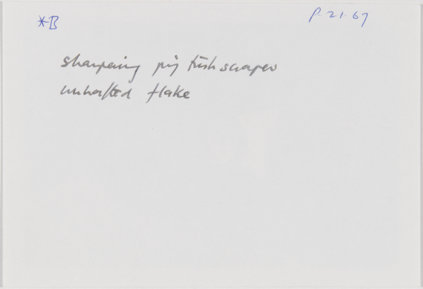 *B
P.21.67
sharpening pig tusk scraper
unhafted flake